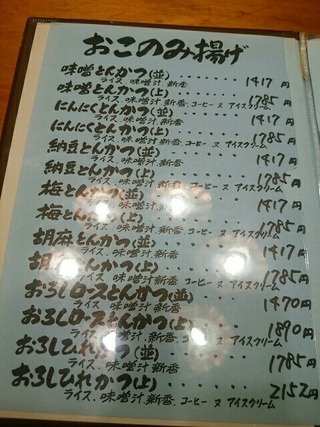 おこのみ揚げ
味噌とんかつ(並)・・・・・・・1417円
ライス、味噌汁、新香
味噌とんかつ(上)・・・・・・・1785円
ライス、味噌汁、新香、コーヒー ヌ アイスクリーム
にんにくとんかつ(並)・・・・・1417円
ライス、味噌汁、新香
にんにくとんかつ(上)・・・・・1785円
ライス、味噌汁、新香、コーヒー ヌ アイスクリーム
納豆とんかつ(並)・・・・・・・1417円
ライス、味噌汁、新香
納豆とんかつ(上)・・・・・・・1785円
ライス、味噌汁、新香、コーヒー ヌ アイスクリーム
梅とんかつ(並)・・・・・・・1417円
ライス、味噌汁、新香
梅とんかつ(上)・・・・・・・1785円
ライス、味噌汁、新香、コーヒー ヌ アイスクリーム
胡麻とんかつ(並)・・・・・・・1417円
ライス、味噌汁、新香
胡麻とんかつ(上)・・・・・・・1785円
ライス、味噌汁、新香、コーヒー ヌ アイスクリーム
おろしロースとんかつ(並)・・・・1470円
ライス、味噌汁、新香
おろしロースとんかつ(上)・・・・1890円
ライス、味噌汁、新香、コーヒー ヌ アイスクリーム
おろしひれかつ(並)・・・・・・1785円
ライス、味噌汁、新香
おろしひれかつ(上)・・・・・・2152円
ライス、味噌汁、新香、コーヒー ヌ アイスクリーム